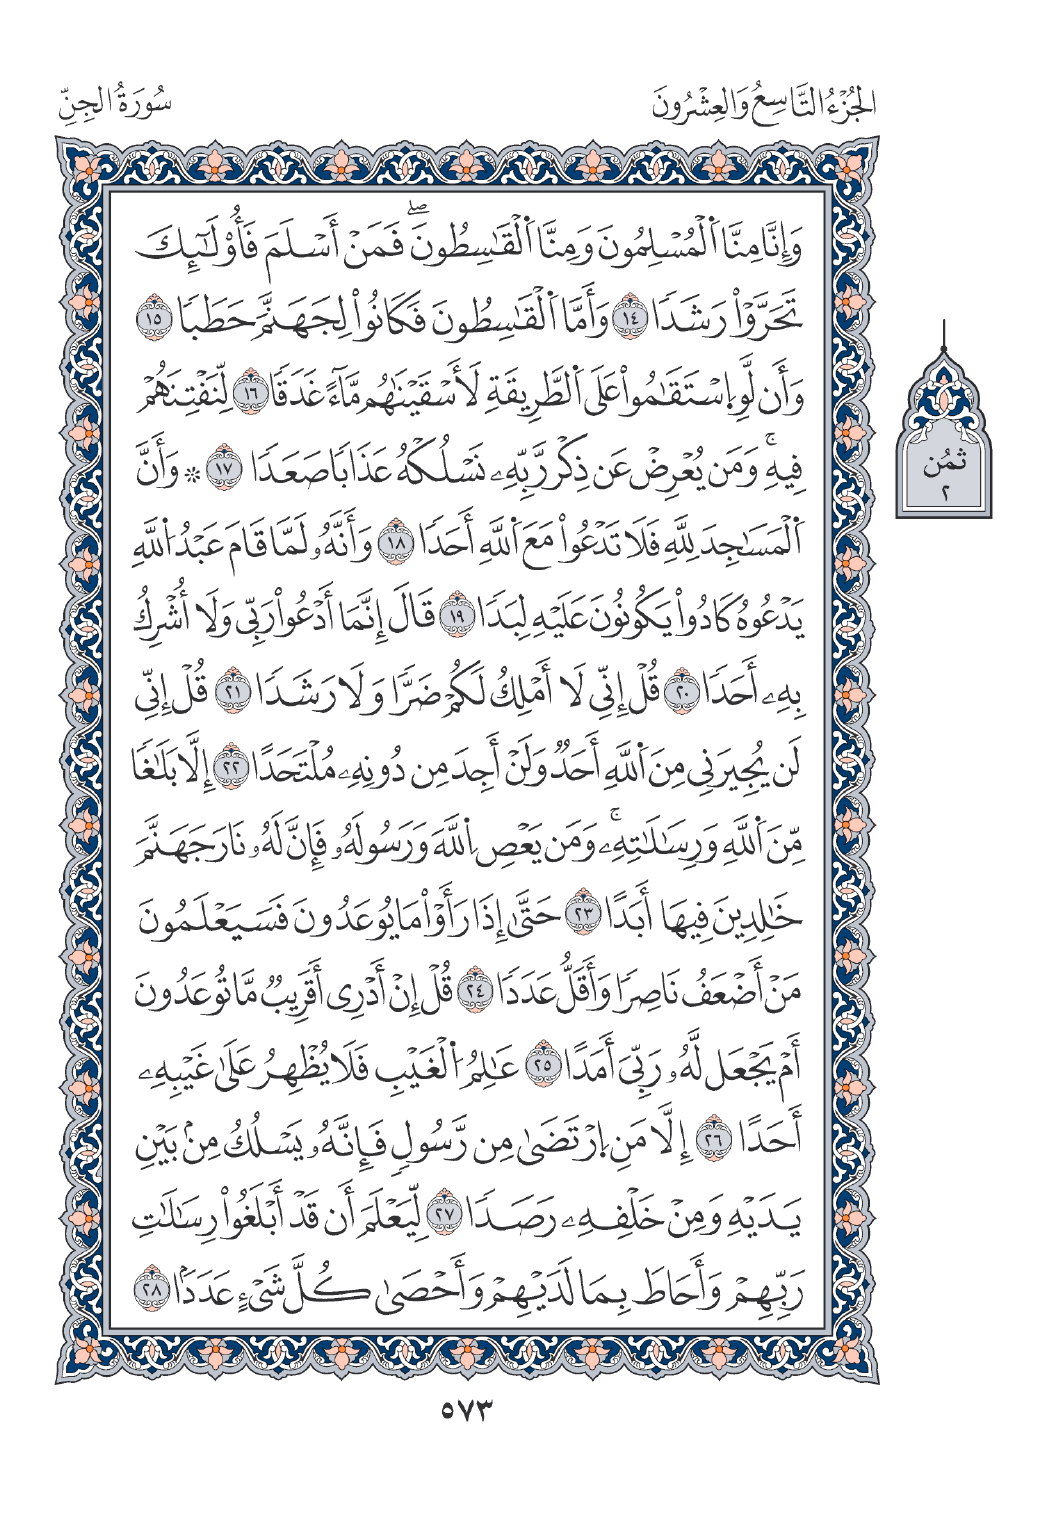 الجُزْءُ التَّاسِعُ وَالعِشْرُونَ
سُورَةُ الجِنِّ
وَإِنَّا مِنَّا ٱلْمُسْلِمُونَ وَمِنَّا ٱلْقَٰسِطُونَۖ فَمَنْ أَسْلَمَ فَأُوْلَٰٓئِكَ
تَحَرَّوْاْ رَشَدٗا ١٤ وَأَمَّا ٱلْقَٰسِطُونَ فَكَانُواْ لِجَهَنَّمَ حَطَبٗا ١٥
وَأَن لَّوِ ٱسْتَقَٰمُواْ عَلَى ٱلطَّرِيقَةِ لَأَسْقَيْنَٰهُم مَّآءً غَدَقٗا ١٦ لِّنَفْتِنَهُمْ
فِيهِۚ وَمَن يُعْرِضْ عَن ذِكْرِ رَبِّهِۦ نَسْلُكْهُ عَذَابٗا صَعَدٗا ١٧ ۞ وَأَنَّ
ٱلْمَسَٰجِدَ لِلَّهِ فَلَا تَدْعُواْ مَعَ ٱللَّهِ أَحَدٗا ١٨ وَأَنَّهُۥ لَمَّا قَامَ عَبْدُ ٱللَّهِ
يَدْعُوهُ كَادُواْ يَكُونُونَ عَلَيْهِ لِبَدٗا ١٩ قَالَ إِنَّمَا أَدْعُواْ رَبِّي وَلَا أُشْرِكُ
بِهِۦ أَحَدٗا ٢٠ قُلْ إِنِّي لَا أَمْلِكُ لَكُمْ ضَرّٗا وَلَا رَشَدٗا ٢١ قُلْ إِنِّي
لَن يُجِيرَنِي مِنَ ٱللَّهِ أَحَدٞ وَلَنْ أَجِدَ مِن دُونِهِۦ مُلْتَحَدًا ٢٢ إِلَّا بَلَٰغٗا
مِّنَ ٱللَّهِ وَرِسَٰلَٰتِهِۦۚ وَمَن يَعْصِ ٱللَّهَ وَرَسُولَهُۥ فَإِنَّ لَهُۥ نَارَ جَهَنَّمَ
خَٰلِدِينَ فِيهَا أَبَدًا ٢٣ حَتَّىٰ إِذَا رَأَوْاْ مَا يُوعَدُونَ فَسَيَعْلَمُونَ
مَنْ أَضْعَفُ نَاصِرٗا وَأَقَلُّ عَدَدٗا ٢٤ قُلْ إِنْ أَدْرِي أَقَرِيبٞ مَّا تُوعَدُونَ
أَمْ يَجْعَل لَّهُۥ رَبِّيَ أَمَدًا ٢٥ عَٰلِمُ ٱلْغَيْبِ فَلَا يُظْهِرُ عَلَىٰ غَيْبِهِۦ
أَحَدًا ٢٦ إِلَّا مَنِ ٱرْتَضَىٰ مِن رَّسُولٖ فَإِنَّهُۥ يَسْلُكُ مِنۢ بَيْنِ
يَدَيْهِ وَمِنْ خَلْفِهِۦ رَصَدٗا ٢٧ لِّيَعْلَمَ أَن قَدْ أَبْلَغُواْ رِسَٰلَٰتِ
رَبِّهِمْ وَأَحَاطَ بِمَا لَدَيْهِمْ وَأَحْصَىٰ كُلَّ شَيْءٍ عَدَدَۢا ٢٨
ثُمُن
٢
٥٧٣